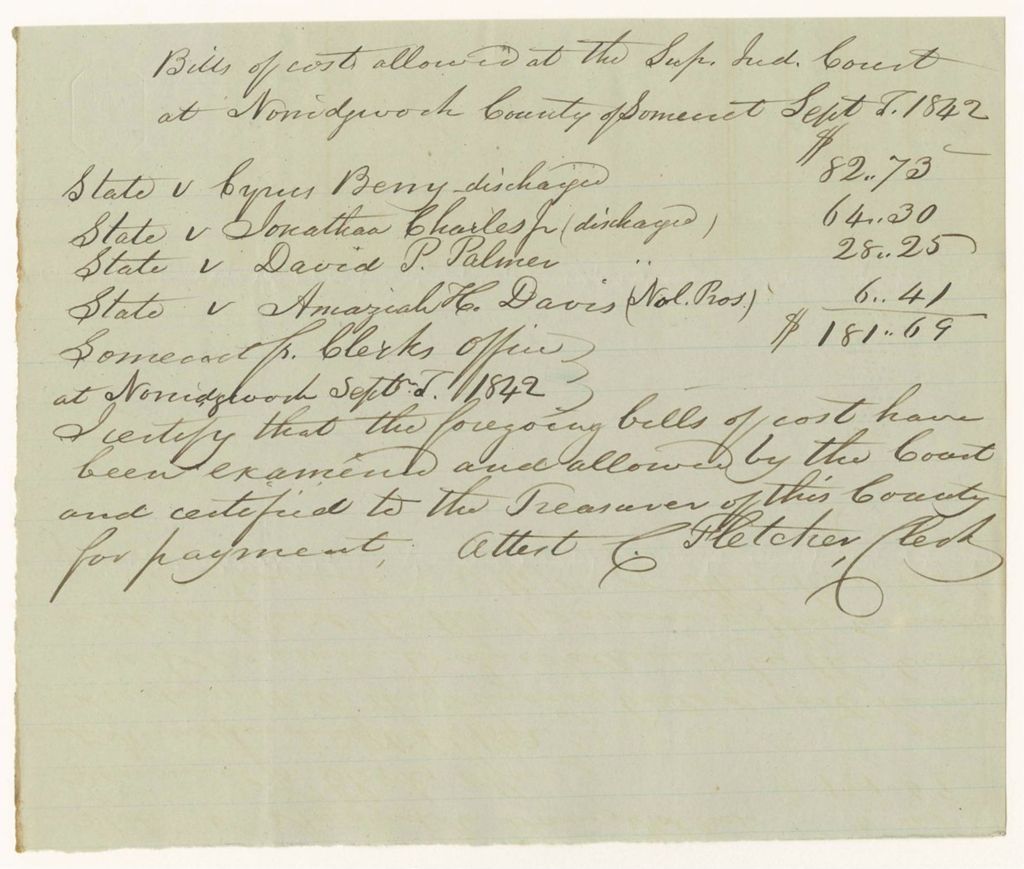 Bills of cost allowed at the Sup. Jud. Court
at Norridgwock County of Somerset Sept T. 1842
$
State v Cyrus Berry discharged 82..73
State v Jonathan Charles Jr (discharged) 64..30
State v David P. Palmer " 28..25
State v Amaziah H. Davis (Nol. Pros.) 6..41
$ 181..69
Somerset ss. Clerks Office
at Norridgwock Sept. T. 1842
I certify that the foregoing bills of cost have
been examined and allowed by the Court
and certified to the Treasurer of this County
for payment, Attest C. Fletcher, Clerk